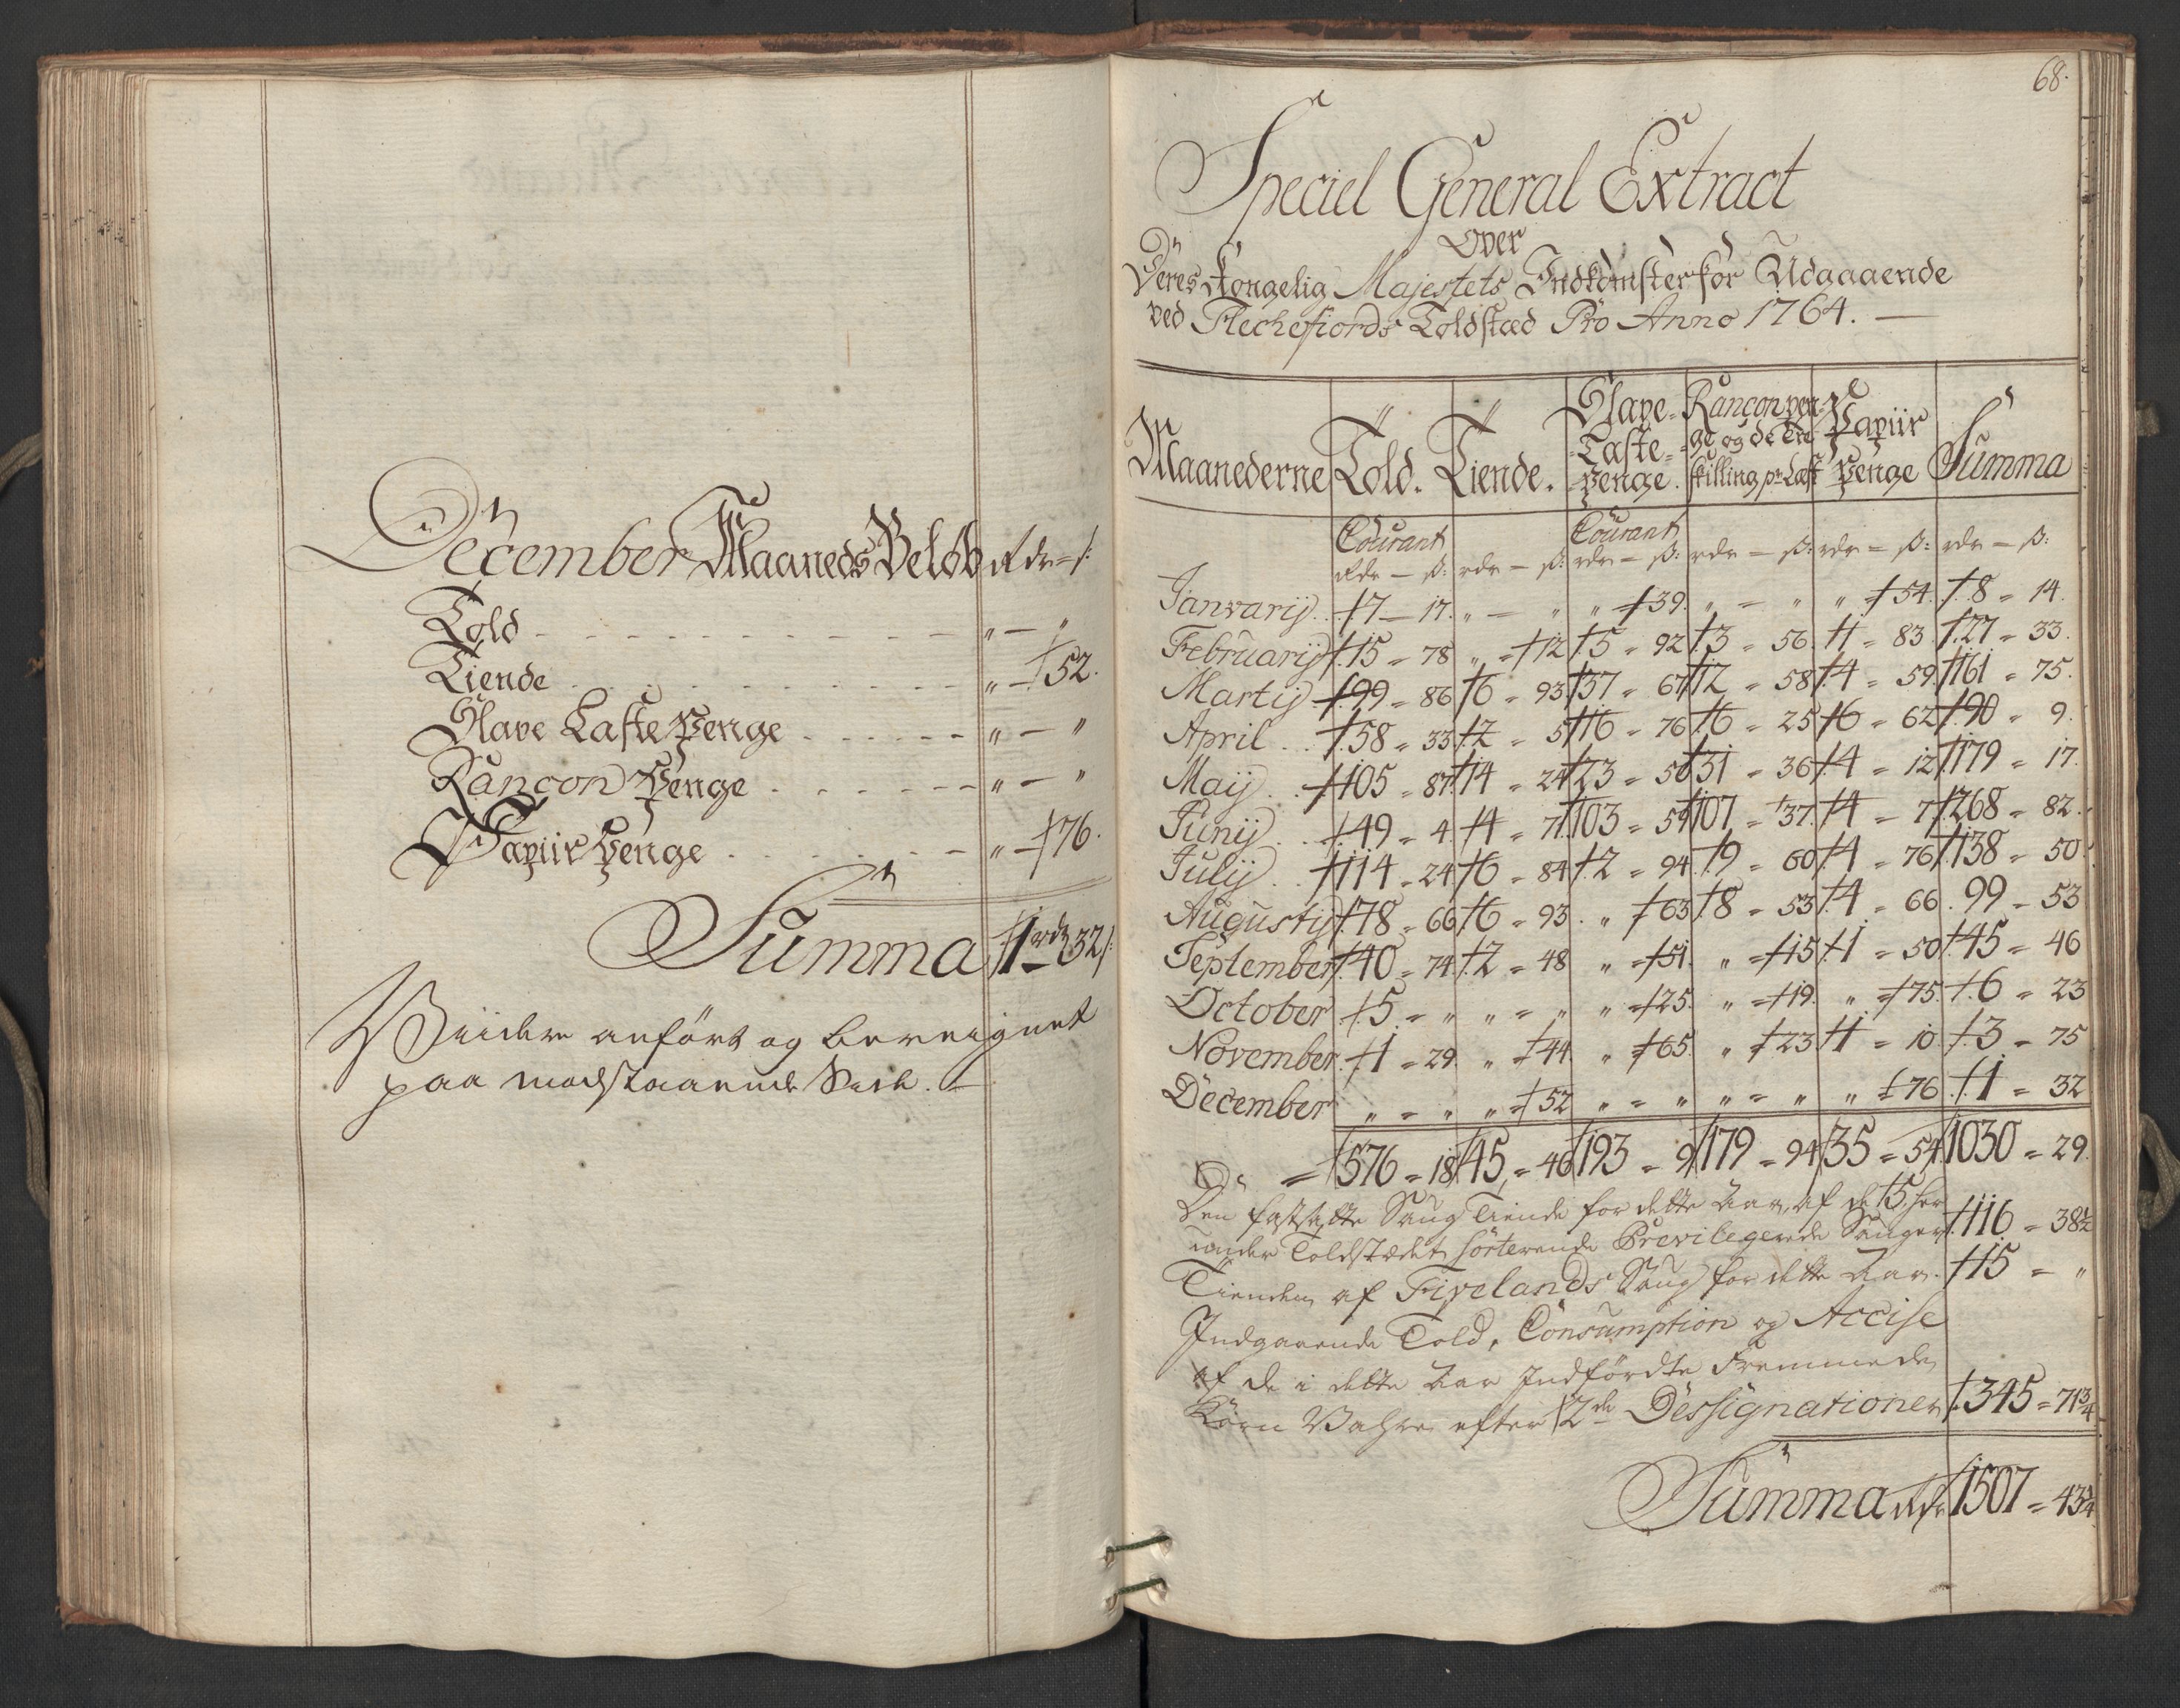 December Maaneds Beløb rdr = ß:
Told - - - - " — "
Tiende . . . . " — 52.
Slave Laste Penge . . . . " — "
Rançon Penge . . . . " — "
Papiir Penge . . . . " — 76.
Summa 1 rdr 32 ß:
Viidere anført og beregnet
paa modstaaende Side. —
68.
Speciel General Extract
Over
Deres Kongelig Majestets Indkomster for Udgaaende
ved Flechefiords Toldsted Pro Anno 1764. —
Maanederne Told. Tiende. Slave= Laste= Penge. Rançon pen= ge og de Tre skilling pr Læst Papiir Penge Summa
Courant Courant
Rdr — ß: rdr — ß: rdr — ß: rdr — ß: rdr = ß: rdr — ß:
Januarij . . 7 — 17. " — " " = 39. " — " " = 54. 8 = 14.
Februarij 15 = 78 " = 12 5 = 92 3 = 56. 1 = 83 27 = 33.
Martij 99 = 86 6 = 93 37 = 67 12 = 58 4 = 59. 161 = 75.
April . . 58 = 33 2 = 5 16 = 76 6 = 25 6 = 62 90 = 9.
Maij . . 105 = 87 14 = 24 23 = 50 31 = 36 4 = 12 179 = 17.
Junij . . 49 = 4. 4 = 71 103 = 59 107 = 37. 4 = 7 268 = 82.
Julij . . 114 = 24 6 = 84 2 = 94. 9 = 60 4 = 76 138 = 50.
Augustij 78 = 66 6 = 93. " = 63 8 = 53 4 = 66. 99 = 53
September 40 = 74 2 = 48 " = 51. " = 15 1 = 50 45 = 46
October 5 = " " = " " = 25. " = 19. " = 75. 6 = 23
November 1 = 29. " = 44. " = 65. " = 23 1 = 10 3 = 75
December " = " " = 52 " = " " = " " = 76. 1 = 32
= 576 = 18 45 = 46 193 = 9 179 = 94 35 = 54 1030 = 29.
Den fastsatte Saug Tiende for dette Aar, af de 15 her
under Toldstedet sorterende Previlegerede Sauger 116 = 38½
Tienden af Fivelands Saug for dette Aar. 15 = "
Indgaaende Told, Consumption og Accise
af de i dette Aar Indførdte Fremmede
Korn Vahre efter 2de Dessignationer 345 = 71¾
Summa Rdr 1507 = 43¼